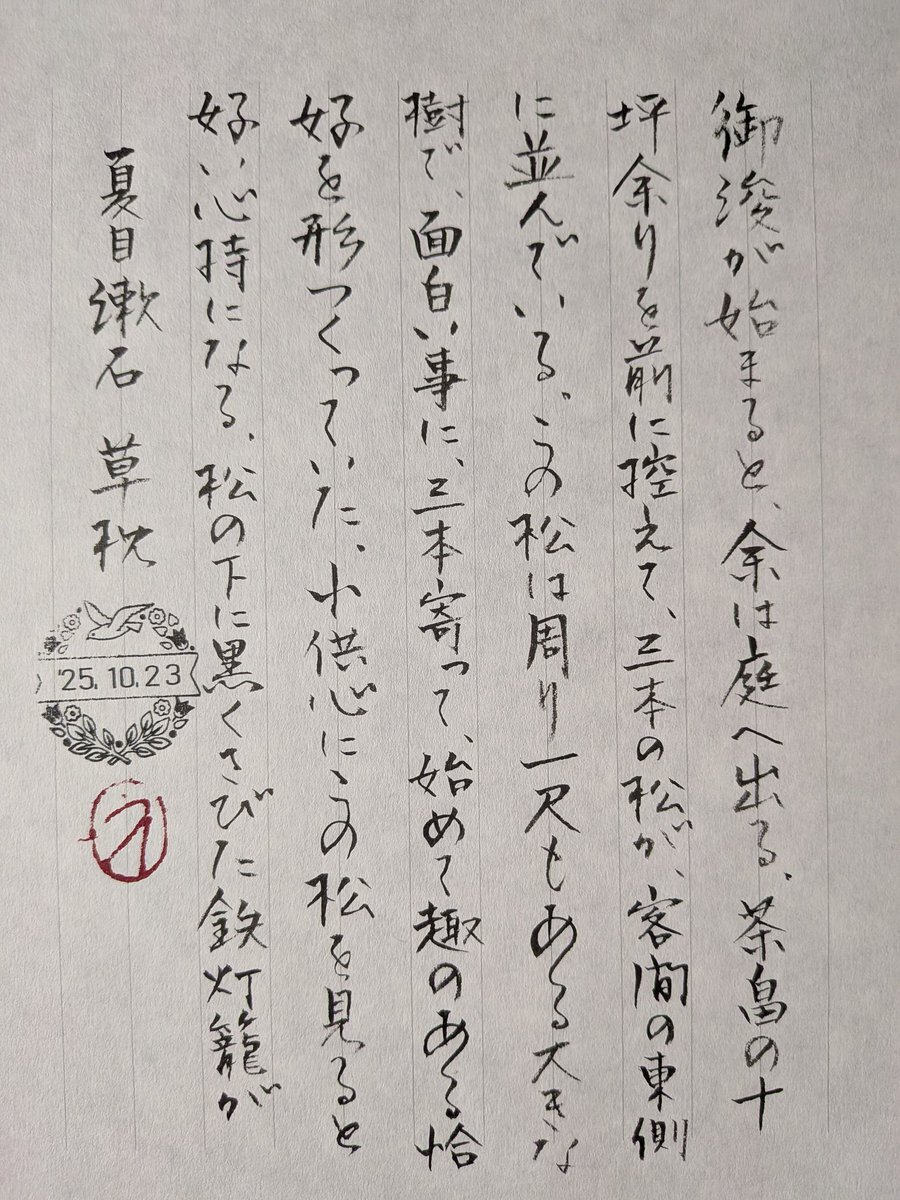 御浚が始まると、余は庭へ出る、茶畠の十
坪余りを前に控えて、三本の松が、客間の東側
に並んでいる、この松は周り一尺もある大きな
樹で、面白い事に、三本寄って、始めて趣のある恰
好を形つくっていた、小供心にこの松を見ると
好い心持になる、松の下に黒くさびた鉄灯籠が
夏目漱石 草枕
'25.10.23